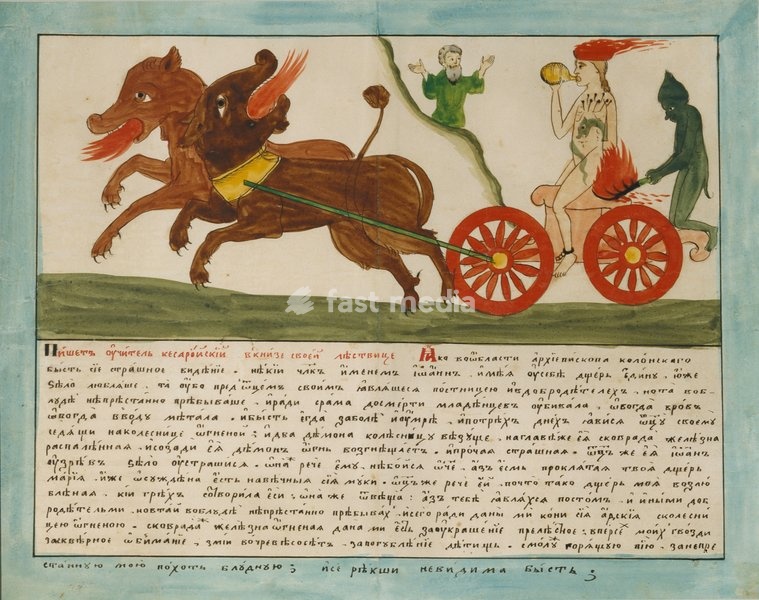 fast media
Пишетъ оучитель кесаройскїй вкнизе своей лѣствице Яко вобласти архїепископа колонского
бысть сїе страшное видѣнїе. нѣкїй члкъ именемъ їѡаннъ. имѣя оусебѣ дщерь едину. юже
ѕѣло любляше. та оубо пред ѿцемъ своимъ являшеся постницею ивдобродѣтелехъ, но та вобл
удѣ непрѣстанно прѣбываше. ѝради срама досмерти младѣнцевъ оубивала. ѡвогда вровъ
ѡвогда вводу мѣтала. ибысть егда заболѣ ѝоумрѣ. ипотрѣхъ днехъ явися ѿцу своему
седящи наколеснице ѡгненой: идва дѣмона колѣсницу везуще. наглавѣже ея сковрада желѣзна
распаленная. исозади ея дѣмонъ ѡгнь возгнѣщаетъ. ипрочая страшная. ѿцъ же ея їѡаннъ
оузрѣвъ зѣло оустрашися. ѡна рече ему. небойся ѡче. азъ есмь проклятая твоя дщерь
марїя. иже ѡсуждена есть навечныя сїя муки. ѿцъ же рече ей. почто тако дщерь моя возлю
бленая. кїи грѣхъ сотворила еси: ѡна же ѿвѣща: азъ тебѣ являхся постомъ. и иными доб
родѣтелми. но втай воблудѣ непрѣстанно прѣбывахъ. исего ради даны ми кони сїя адскїя сколесни
цею ѡгненою. сковрада желѣзна ѡгненая дана ми есть заоукрашенїе прелѣсное: вперсѣхъ моихъ гвозди
заскверное ѡбниманїе. змїи вочревѣ сосѣтъ. запогублѣнїе дѣтищь. смолу горящую пїю. занепре
станную мою похоть блудную; исе рѣкши невидима бысть;